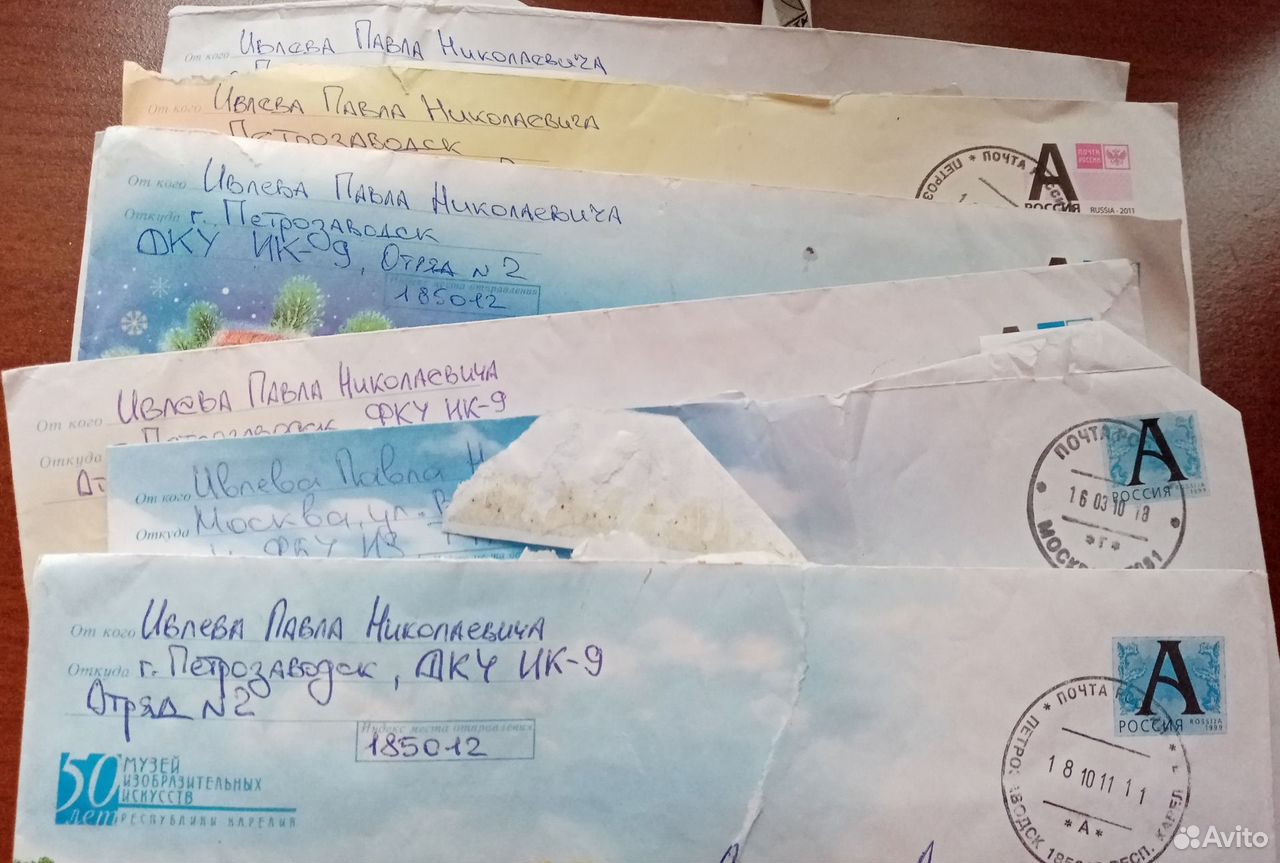 От кого Ивлева Павла Николаевича
От кого Ивлева Павла Николаевича
Петрозаводск
ПОЧТА РОССИИ
А
РОССИЯ
RUSSIA - 2011
* ПОЧТА
От кого Ивлева Павла Николаевича
Откуда г. Петрозаводск
ФКУ ИК-9, Отряд N 2
места отправления
185012
От кого Ивлева Павла Николаевича
Откуда г. Петрозаводск ФКУ ИК-9
От кого Ивлева Павла
Откуда Москва, ул.
ФКУ ИЗ
А
РОССИЯ
ROSSIJA
1999
ПОЧТА
16 03 10 18
*Г*
От кого Ивлева Павла Николаевича
Откуда г. Петрозаводск, ФКУ ИК-9
Отряд N 2
Индекс места отправления
185012
50 лет
МУЗЕЙ
ИЗОБРАЗИТЕЛЬНЫХ
ИСКУССТВ
РЕСПУБЛИКИ КАРЕЛИЯ
А
РОССИЯ
ROSSIJA
1999
* ПОЧТА
18 10 11 11
*А*
Avito